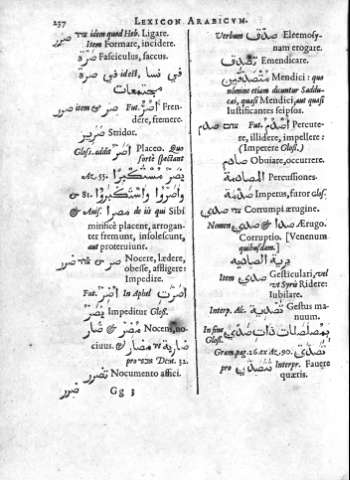 257 LEXICON ARABICVM.
صرر צרר idem quod Heb. Ligare.
Item Formare, incidere.
صرة Fasciculus, saccus.
في نسا idest, في صرة
مجتمعات
صرر item & صر Fut. Frendere, fremere.
صرير Stridor.
Gloss. addit أصر Placeo. Quo
fortè spectant
Az. 55. يصر مستكبرا
& 81. وأصروا واستكبروا
& Avis. مصرا de iis qui Sibi
minificè placent, arroganter
fremunt, insolescunt,
aut proterviunt.
صرر צרר & صر Nocere, lædere,
obesse, affligere:
Impedire.
Fut. يضر In Aphel أضررت
يضر Impeditur Glos.
ضار & مضر Nocens, nocivus.
& ضارية מצר مضار
pro מזי Deut. 32.
تضرر Nocumento affici.
ضرر
Gg 3
Verbum صدق Eleemosynam
erogare.
تصدق Emendicare.
متصدقين Mendici: quo
nomine etiam dicuntur Sadducæi,
quasi Mendici, aut quasi
Iustificantes seipsos.
صدم صدم Fut. أصدم Percutere,
illidere, impellere:
(Imperere Glos.)
صادم Obviare, occurrere.
المصادمة Percussiones.
صدمة Impetus, furor Glos.
صدي Corrumpi ærugine.
Nomen صدا & صدي Ærugo.
Corruptio. [Venenum
quibusdam.]
Item صدي Gesticulari, vel
ut Syris Ridere:
Iubilare.
Interp. Alc. تصدية Gestus manuum.
In fine Glos. بمصلصلات ذات صدي
Gram. pag. 26. ex Az. 90. تصدي
pro تتصدي Interpr. Favere
quæris.